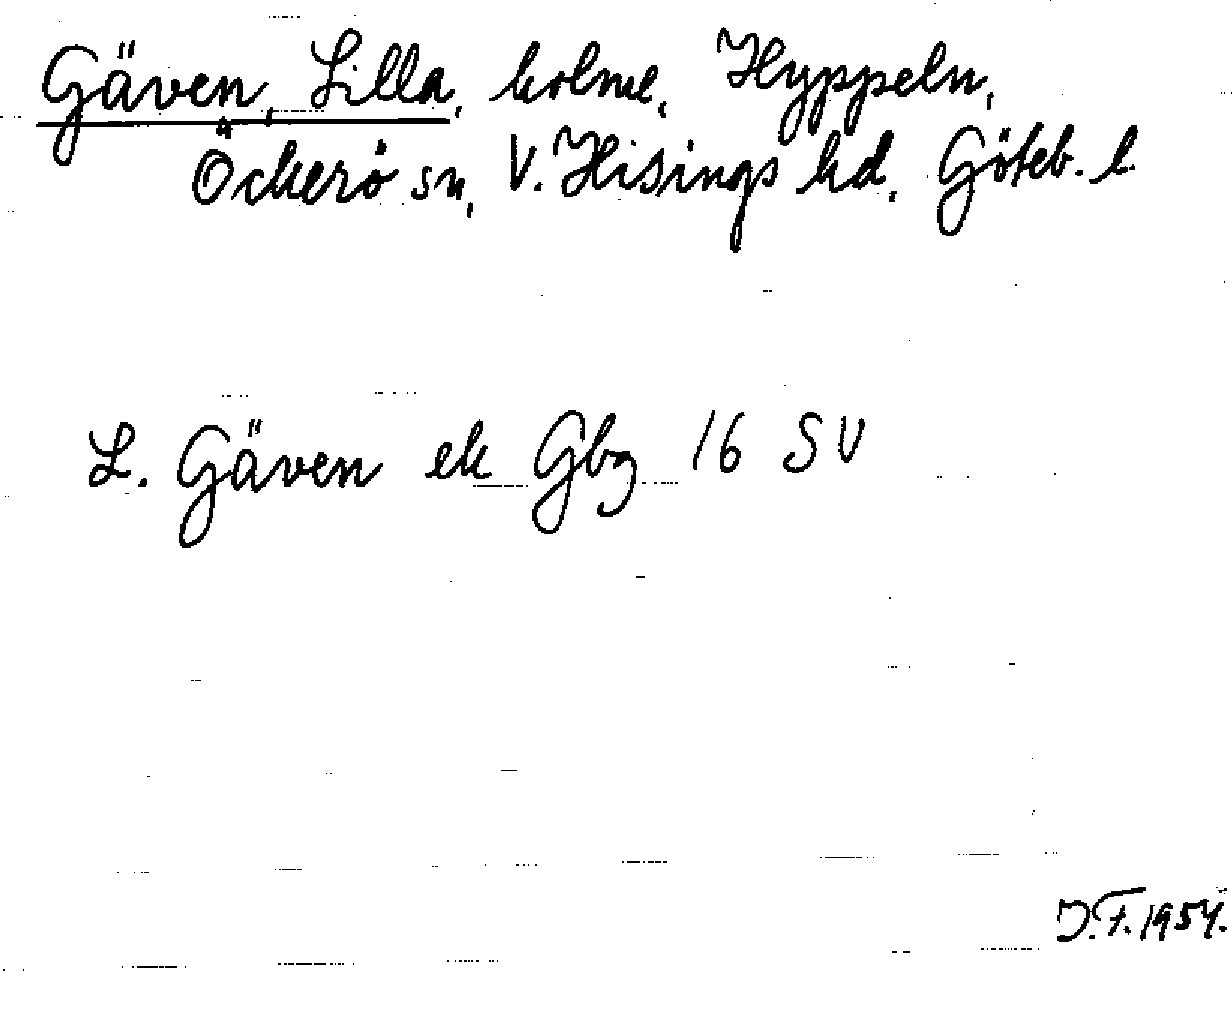 Gäven, Lilla, holme, Hyppeln,
Öckerö sn, V. Hisings hd, Göteb. l.
L. Gäven ek Gbg 16 SV
J.F. 1954.